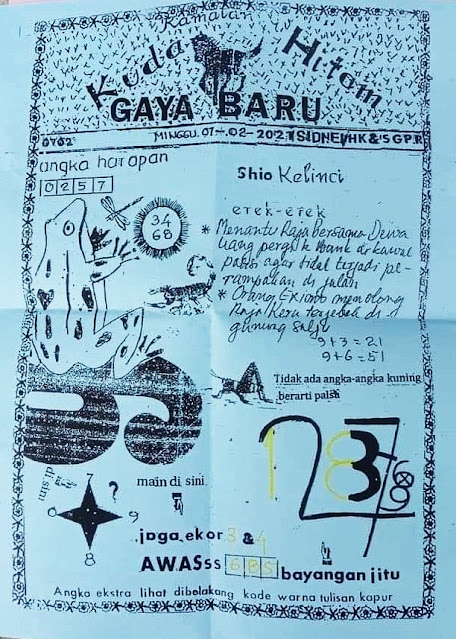 Ramalan
Kuda Hitam
GAYA BARU
0702 MINGGU. 07-02-2021 SIDNEY HK & SGPR
angka harapan
0257
Shio Kelinci
34
68
erek-erek
* Menantu Raja bersama Dewa
uang pergi ke Bank di kawal
polisi agar tidak terjadi pe-
rampokan di jalan
* Orang Eximo menolong
Raja Kera terjebak di
gunung Salju
9+3=21
9+6=51
Tidak ada angka-angka kuning
berarti palsu
di sini
main di sini
7
?
6
9
8
1 8 3 7
6
8
9
jaga ekor 3 & 4
AWASss 685 bayangan jitu
Angka ekstra lihat dibelakang kode warna tulisan kapur